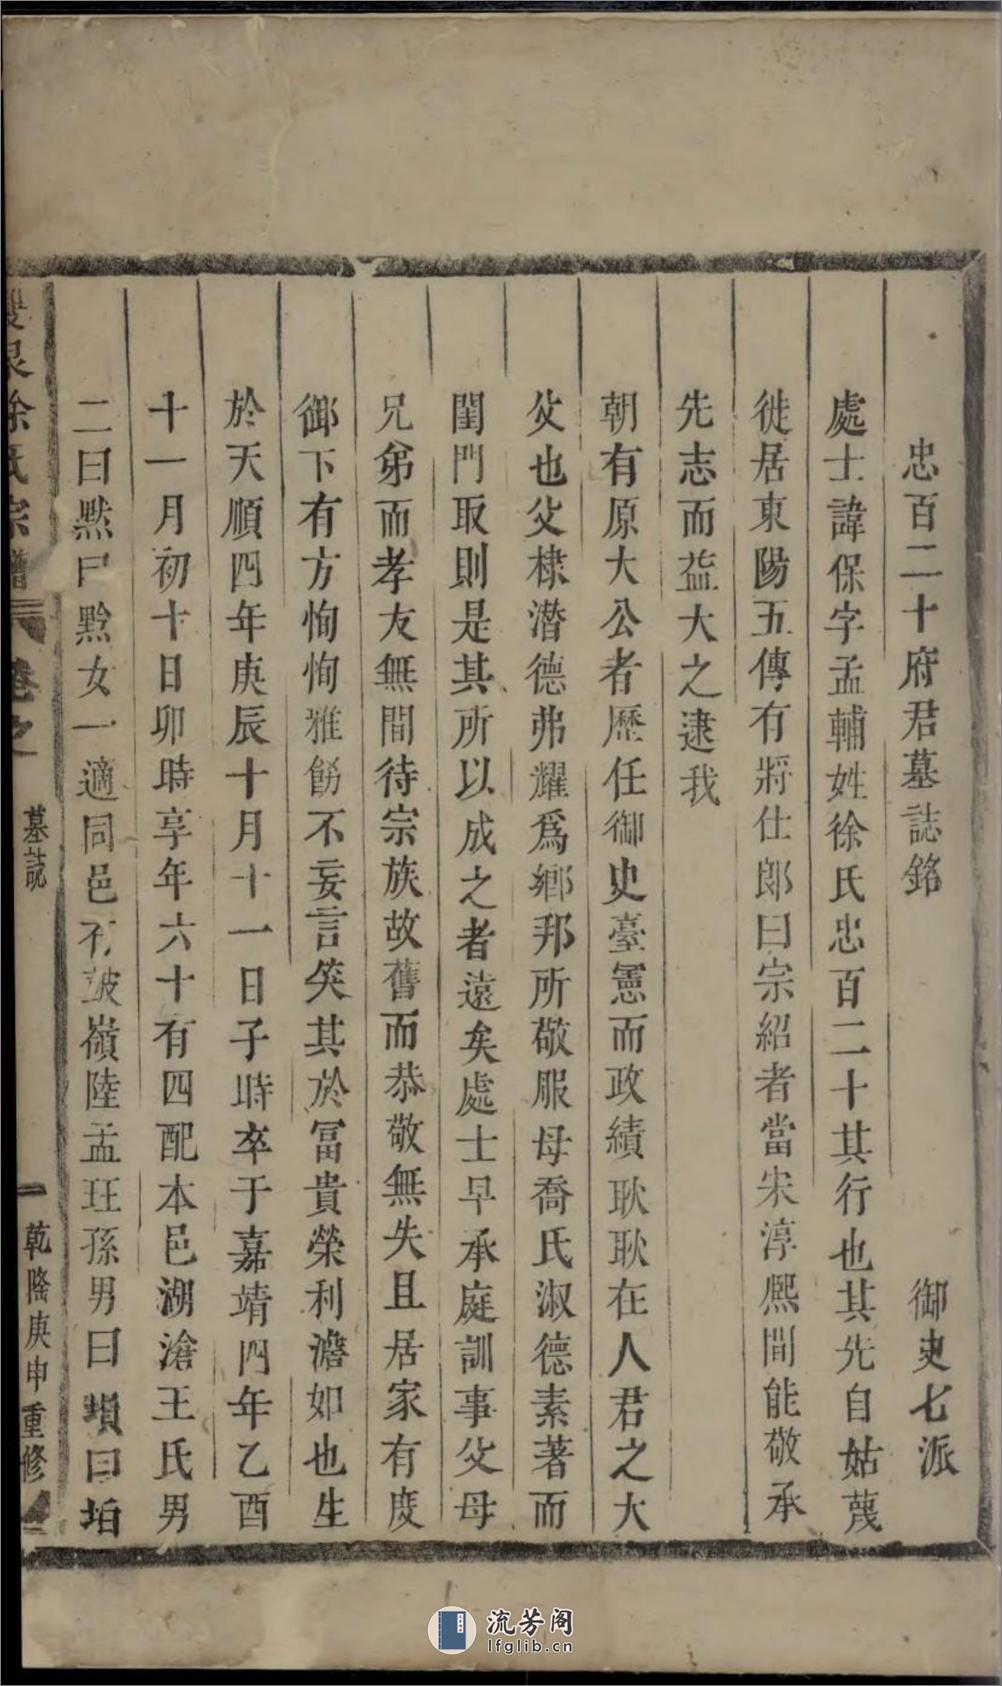 忠百二十府君墓誌銘　御史七派
處士諱保字孟輔姓徐氏忠百二十其行也其先自姑蔑
徙居東陽五傳有將仕郎曰宗紹者當宋淳熙間能敬承
先志而益大之逮我
朝有原大公者歷任御史臺憲而政績耿耿在人君之大
父也父棣潛德弗耀爲鄉邦所敬服母喬氏淑德素著而
閨門取則是其所以成之者遠矣處士早承庭訓事父母
兄弟而孝友無間待宗族故舊而恭敬無失且居家有度
御下有方恂恂雅飭不妄言笑其於冨貴榮利澹如也生
於天順四年庚辰十月十一日子時卒于嘉靖四年乙酉
十一月初十日卯時享年六十有四配本邑湖滄王氏男
二曰㸃曰黔女一適同邑嶺陸孟玨孫男曰塤曰垍
徐氏宗譜
卷之
墓誌
一
乾隆庚申重修
流芳阁
lfglib.cn